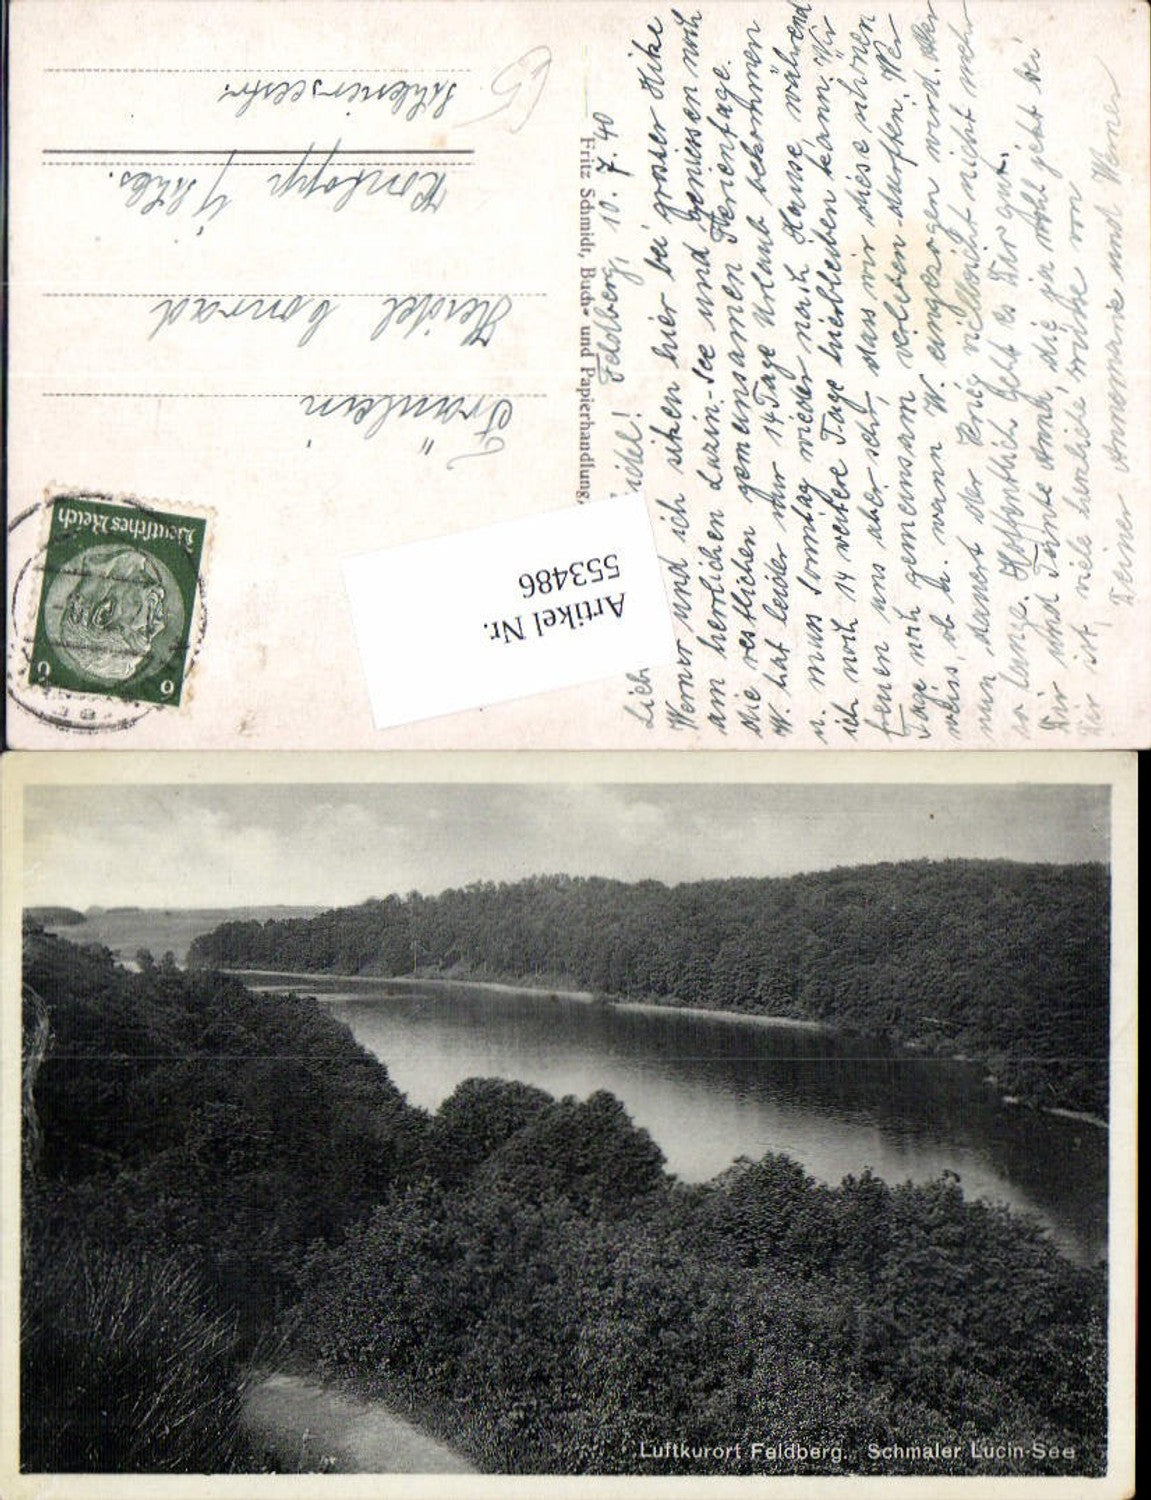 Feldberg, 10.7.40
Werner und ich sitzen hier bei grosser Hitze
am herrlichen Luzin-See und geniessen noch
die restlichen gemeinsamen Ferientage.
W. hat leider nur 14 Tage Urlaub bekommen
u. muss sonntag wieder nach Hause, während
ich noch 14 weitere Tage hierbleiben kann. Wir
freuen uns aber sehr, dass wir diese schönen
Tage noch gemeinsam verleben durften. Wer
weiss, ob u. wann W. eingezogen wird. Aber
nun dauert der Krieg vielleicht nicht mehr
so lange. Hoffentlich geht es Dir gut.
Dir und Tante Anna, die ja wohl jetzt bei
Dir ist, viele herzliche Grüsse von
Deiner Annemarie und Werner
Fritz Schmidt, Buch- und Papierhandlung,
Fräulein
Heidel Conrad
Kontopp /Schles.
Schlawerseestr.
Deutsches Reich
6 6
Artikel Nr.
553486
Luftkurort Feldberg. Schmaler Lucin-See